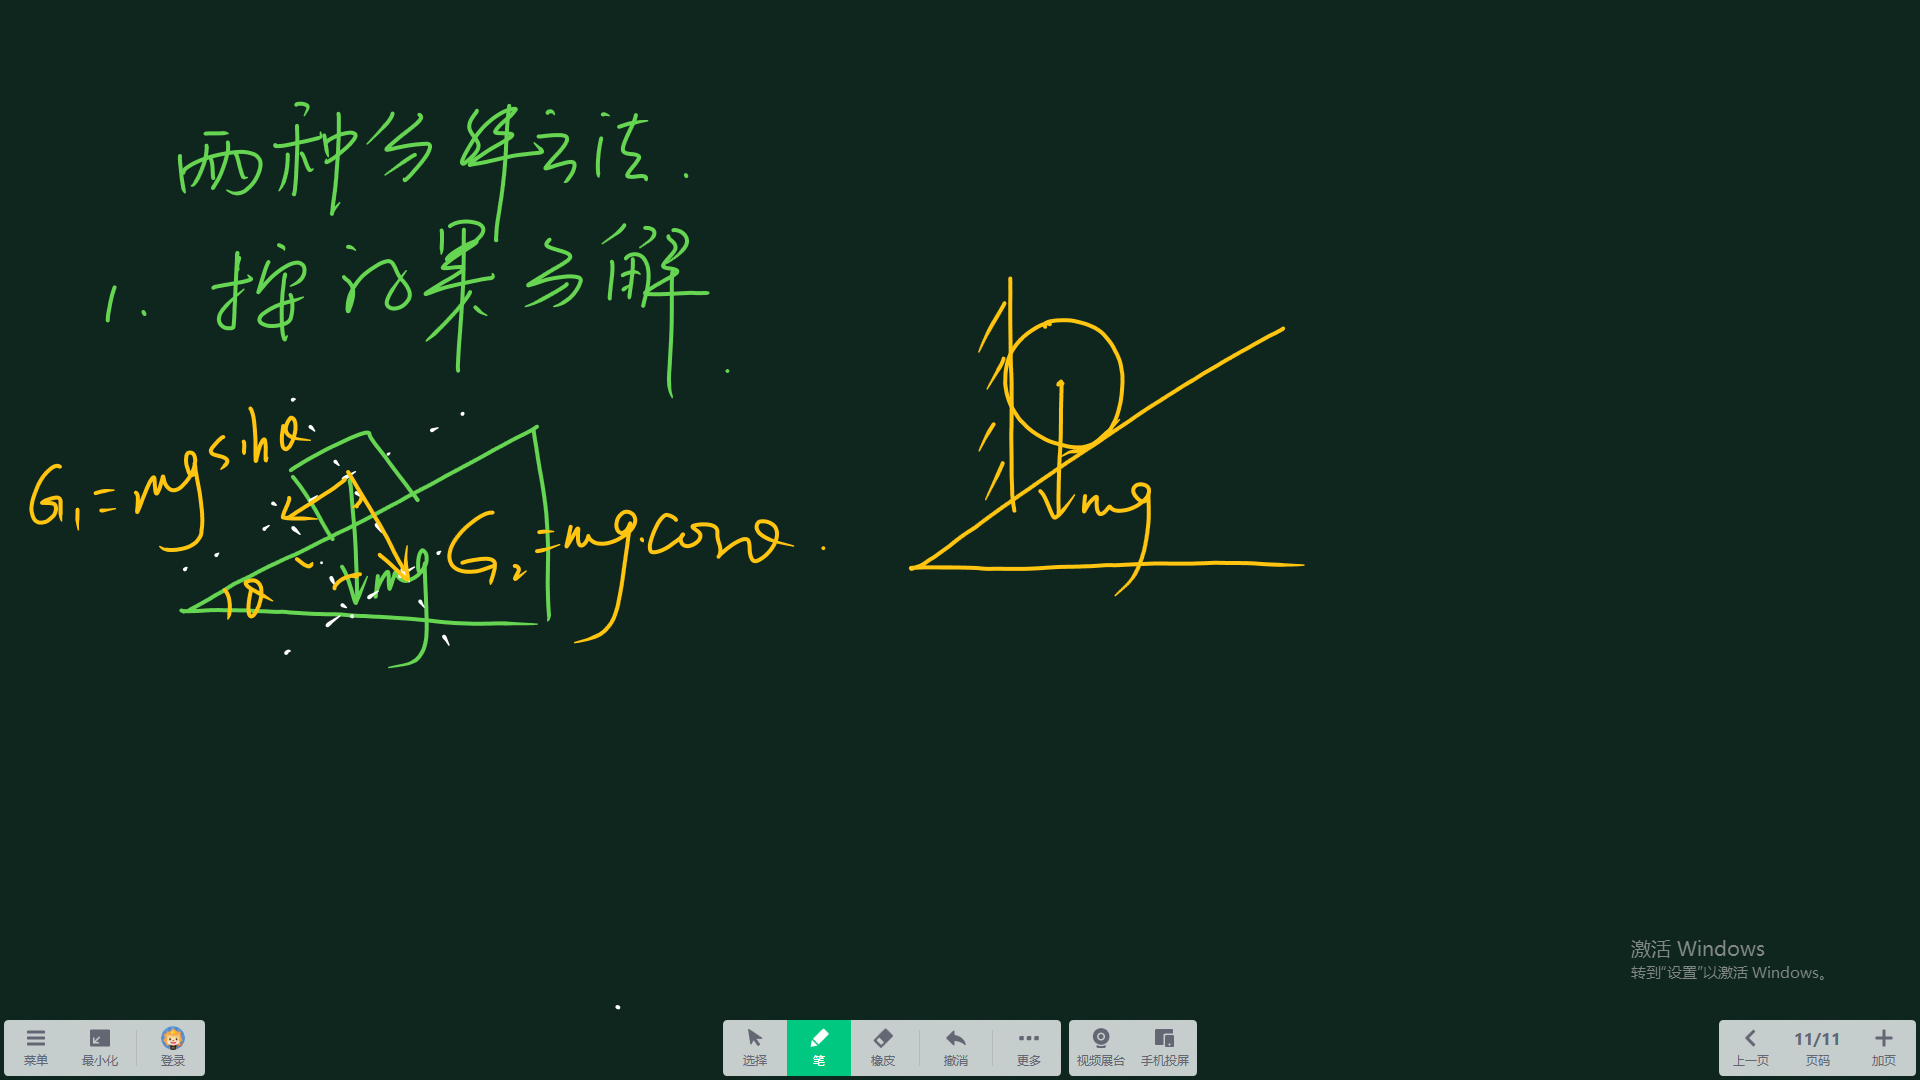 两种分解方法.
1. 按效果分解.
G₁=mgsinθ
G₂=mg.cosθ.
mg
θ
mg
激活 Windows
转到“设置”以激活 Windows。
菜单
最小化
登录
选择
笔
橡皮
撤消
更多
视频展台
手机投屏
上一页
11/11
页码
加页